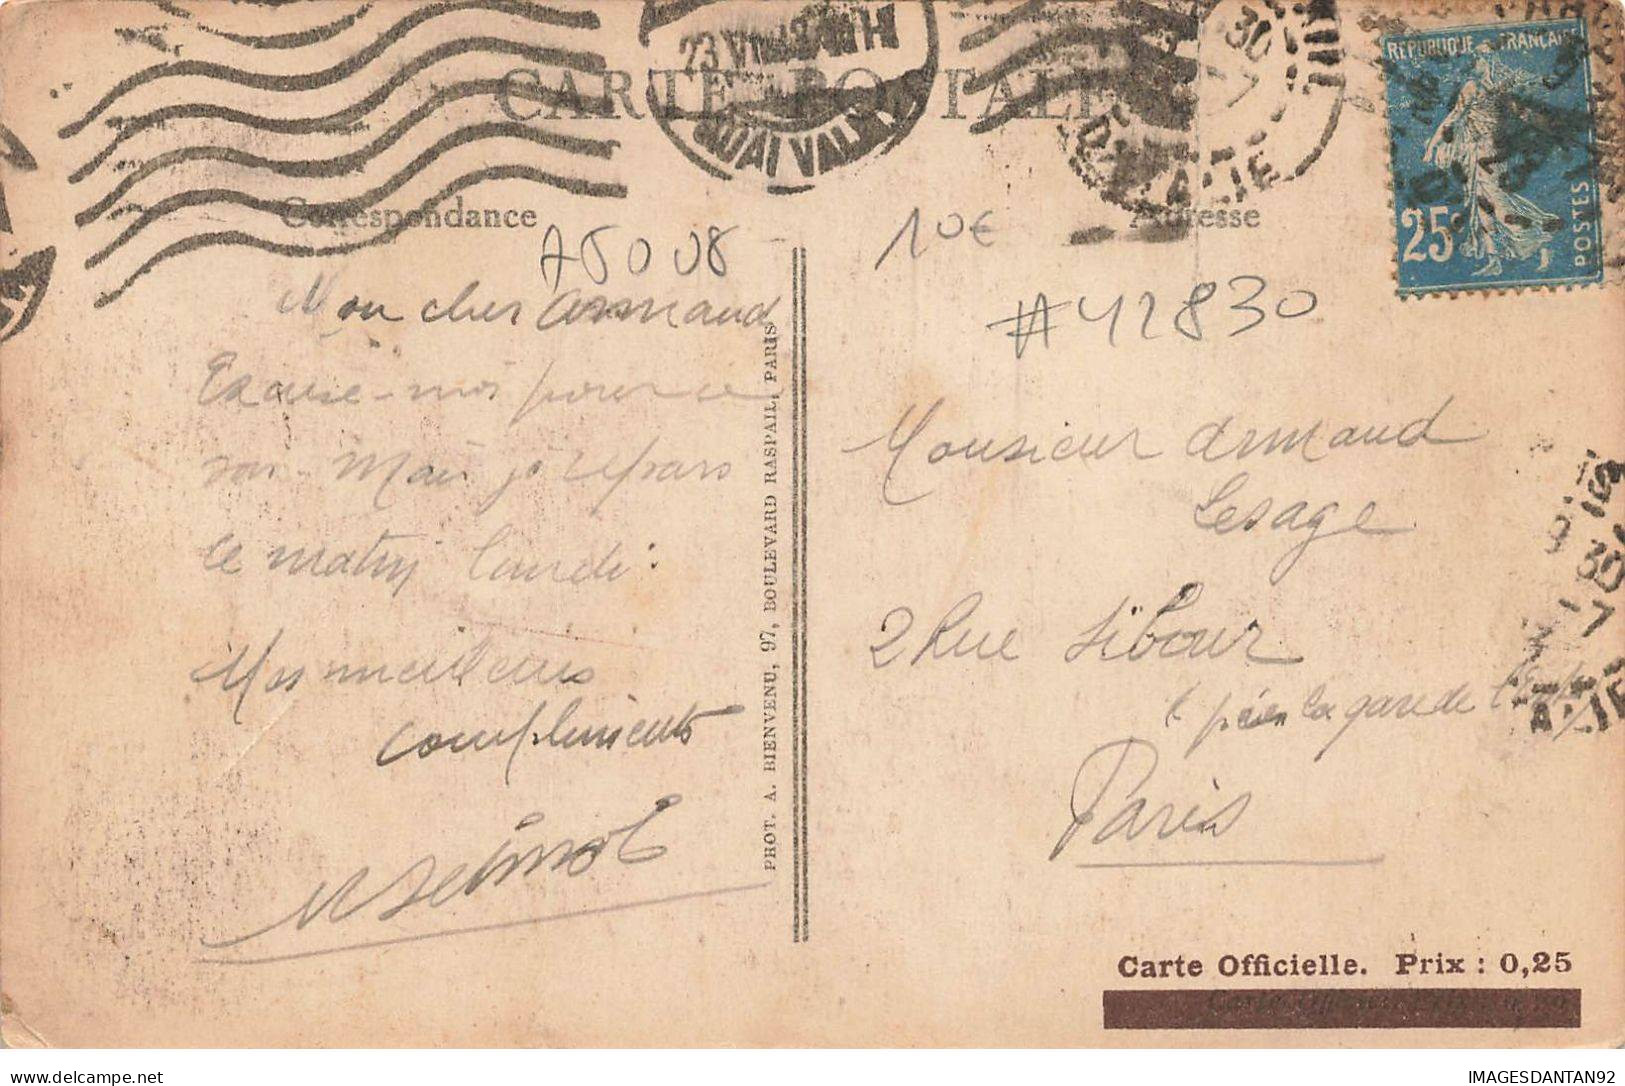 CARTE POSTALE
23 VII
QUAI VALM
30
7
REPUBLIQUE FRANÇAISE
25c
POSTES
Correspondance
Adresse
75008
10€
#42830
Mon cher Armand
Excuse-moi pour ce
soir. Mais je repars
ce matin lundi.
Mes meilleurs
compliments
Monsieur Armand
Lesage
2 Rue Sibour
la gare de l'Est
Paris
PHOT. A. BIENVENU, 97, BOULEVARD RASPAIL, PARIS
9 30
7
Carte Officielle. Prix : 0,25
delcampe.net
IMAGESDANTAN92